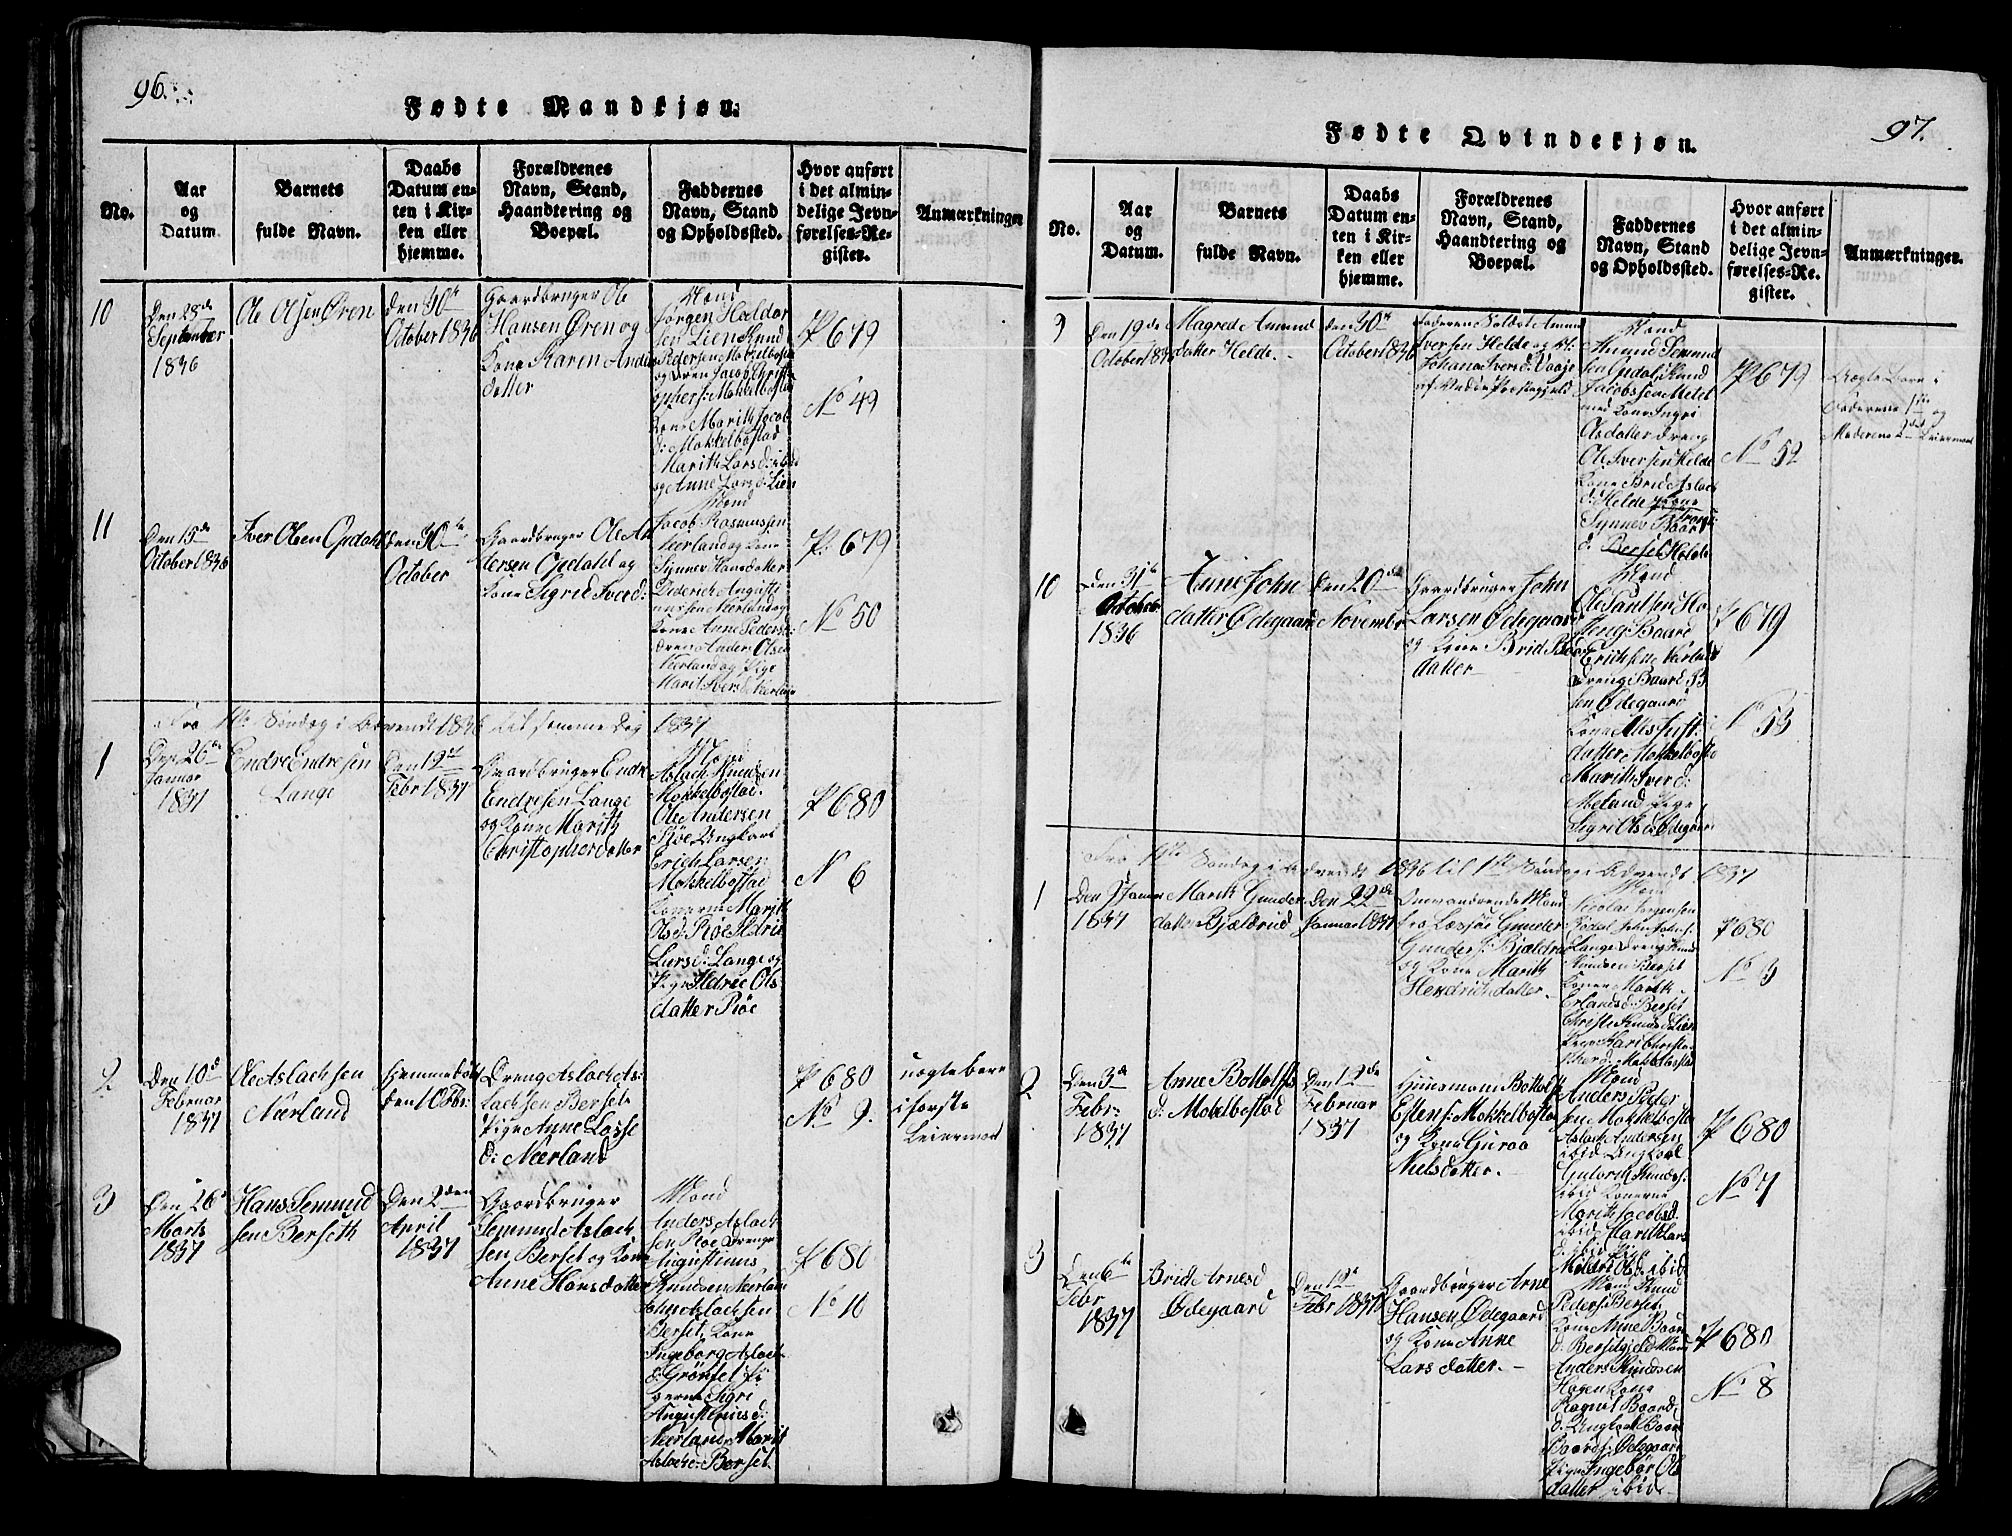 96.
Fødte Mandkjøn.
No.
Aar
og
Datum.
Barnets
fulde Navn.
Daabs
Datum en-
ten i Kir-
ken eller
hjemme.
Forældrenes
Navn, Stand,
Haandtering og
Boepæl.
Faddernes
Navn, Stand
og Opholdssted.
Hvor anført
i det almin-
delige Jevn-
førelses-Re-
gister.
Anmærkninger
10
Den 28de
September
1836
Ole Olsen Øren
den 30te
October 1836
Gaardbruger Ole
Hansen Øren og
Kone Karen Anders
datter
Mænd
Jørgen Haldor
sen Lien Knud
Pedersen Mokkelbostad
og Dreng Jacob Christ
ophers: Mokkelbostad
Kone Marith Jacob
d: Mokkelbostad
Marith Larsd: ibid
og Anne Larsd: Lien
P 679
No 49
11
Den 15de
October 1836
Iver Olsen Opdahl
den 30te
October
Gaardbruger Ole An
dersen Opdahl og
Kone Sigrid Iversd:
Mænd
Jacob Rasmussen
Neerland og Kone
Synnev Hansdatter
Diderich Augusti
nussen Neerland og
Kone Anne Pedersd:
Dreng Anders Olsen
Neerland og Pige
Marit Iversd: Neerland
P. 679
No 50
Fra 1ste Søndag i Advendt 1836 til samme Dag 1837
1
Den 26de
Januar
1837
Endre Endresen
Lange
Den 12te
Febr 1837
Gaardbruger Endre
Endresen Lange
og Kone Marith
Christophersdatter
Mænd
Aslach Knudsen
Mokkelbostad
Ole Andersen
Røe Ungkarl
Erich Larsen
Mokkelbostad
Konerne Marith
Olsd: Røe Ildrie
Larsd: Lange og
Pige Ildrie Ols
datter Røe
P 680
N 6
2.
Den 10de
Februar
1837
Ole Aslachsen
Nærland
Hjemmedøbt
den 10 Fbr:
Dreng Aslach As:
lachsen Berset
Pige Anne Lasse
d: Nærland
P 680
No 9.
uægtebarn
i første
Leiermaal
3
Den 26de
Marts
1837
Hans Semund
sen Berseth
Den 2den
April
1837
Gaardbruger
Semund Aslach
sen Berset og Kone
Anne Hansdatter
Mænd
Anders Aslach
sen Røe Drenge
Augustinus
Knudsen Neerland
John Aslachsen
Berset, Kone
Ingeborg Aslach
d: Grønset Pi
gerne Sigri
Augustinusd:
Nærland Marit
Aslachsd: Berset
P 680
No 10
97.
Fødte Qvindekjøn.
No.
Aar
og
Datum.
Barnets
fulde Navn.
Daabs
Datum en-
ten i Kir-
ken eller
hjemme.
Forældrenes
Navn, Stand,
Haandtering og
Boepæl.
Faddernes
Navn, Stand
og Opholdssted.
Hvor anført
i det almin-
delige Jevn-
førelses-Re-
gister.
Anmærkninger.
9
Den 19de
October 1836
Magred Amund
datter Helde.
den 30te
October 1836
Faderen Soldat Amund
Iversen Helde og Pi:
Johana Iversd: Vaaje
af Vedøe Præstegjeld
Mænd
Amund Semund
sen Opdal, Knud
Jacobsen Metel
med Kone Ingri
Asdatter Dreng
Ole Iversen Helde
Kone Brid Aslach
d: Helde
Synnev Baard
d: Berset Helde
P 679
No 52
Uægte Barn i
Faderens 1ste og
Moderens 2det Leiermaal
10
Den 31te
October
1836
Anne John
datter Ødegaard
Den 20de
November
Gaardbruger John
Larsen Ødegaard
og Kone Brid Baar
datter
Mænd
Ole Paulsen Ho
Jeng Baard
Erichsen Nærland
Dreng Baard
sen Ødegaard
Kone
datter Mokkelbosta
Marith Iverd:
Meland Pige
Sigri Olsd: Ødegaard
P 679
No 53
Fra 1ste Søndag i Advendt 1836 til 1ste Søndag i Advendt 1837
1
Den Januar
1837
Marit Gunder
datter Bjældrud
Den 22de
Januar 1837
Omvandrende Mand
fra Læsjøe Gunder
Gunders: Bjældrud
og Kone Marith
Hendrichdatter
Mænd
Nicolai Jørgensen
John Johns:
Lange Dreng Knud
Knudsen Berset
Koner Marith
Erlandsd: Berset
Christi Knudsd: Lien
Pige Kari Christo
pherd: Mokkelbostad
P 680
No 3
2
Den 3de
Febr:
1837
Anne Bottolfs
d: Mokelbostad
Den 12de
Februar
1837
Huusmand Bottolf
Estens: Mokkelbostad
og Kone Guroa
Nielsdatter.
Mænd
Anders Peder
sen Mokkelbosta
Aslach Andersen
ibid Ungkarl
Gutorm Knuds:
ibid Konerne
Marith Jacobsd:
ibid Marith Lars
d: ibid Pige
Mildri Olsd: ibid
P 680
No 7
3
Den 6te
Febr
1837
Brit Arnesd
Ødegaard
Den 19de
Febr 1837
Gaardbruger Arne
Hansen Ødegaard
og Kone Anne
Larsdatter.
Mænd Knud
Peders: Berset
Kone Anne Baard
d: Berset Mand
Anders Knudsen
Hagen Kone
Ragnil Baard
d: Ungkarl Baar
Baards: Ødegaard
Pige Ingebor Ols
datter ibid
P 680
No 8